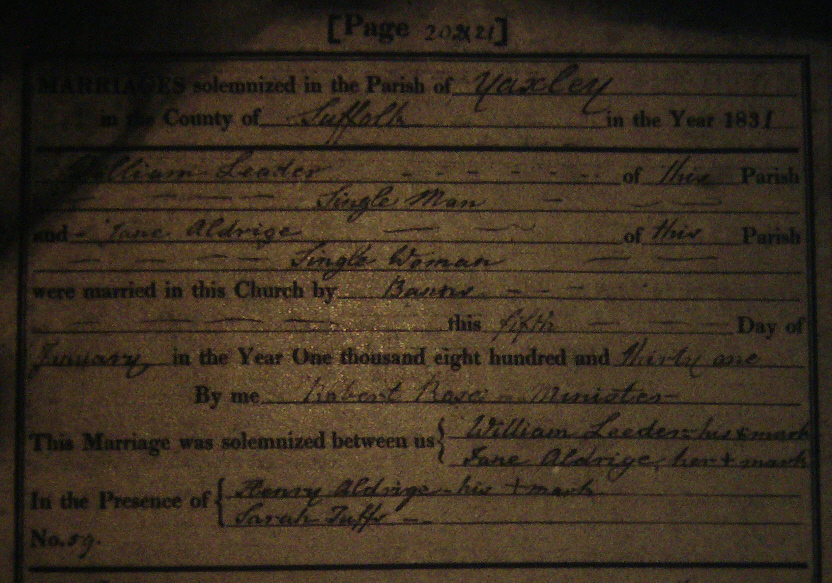 [Page 20 21]
MARRIAGES solemnized in the Parish of Yaxley
in the County of Suffolk in the Year 1831
William Leader of this Parish
Single Man
and Jane Aldrige of this Parish
Single Woman
were married in this Church by Banns
this fifth Day of
January in the Year One thousand eight hundred and thirty one
By me Robert Rose Minister
This Marriage was solemnized between us { William Leeder his x mark
Jane Aldrige her + mark
In the Presence of { Henry Aldrige his + mark
Sarah Tuffs
No. 59.